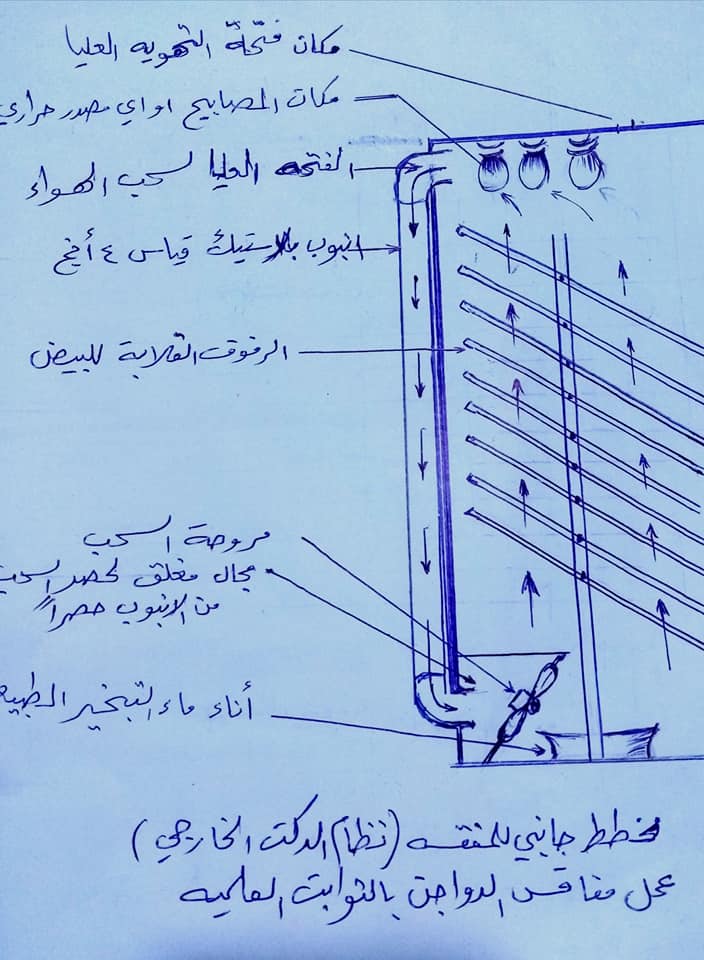 مكان فتحة التهويه العليا
مكان المصابيح او اي مصدر حراري
الفتحه العليا لسحب الهواء
انبوب بلاستيك قياس ٤ أنج
الرفوف القلابة للبيض
مروحة السحب
مجال مغلق لحصر السحب
من الانبوب حصراً
أناء ماء التبخير الطبيع
مخطط جانبي للمفقسه (نظام الدكت الخارجي)
عمل مفاقس الدواجن بالثوابت العلميه